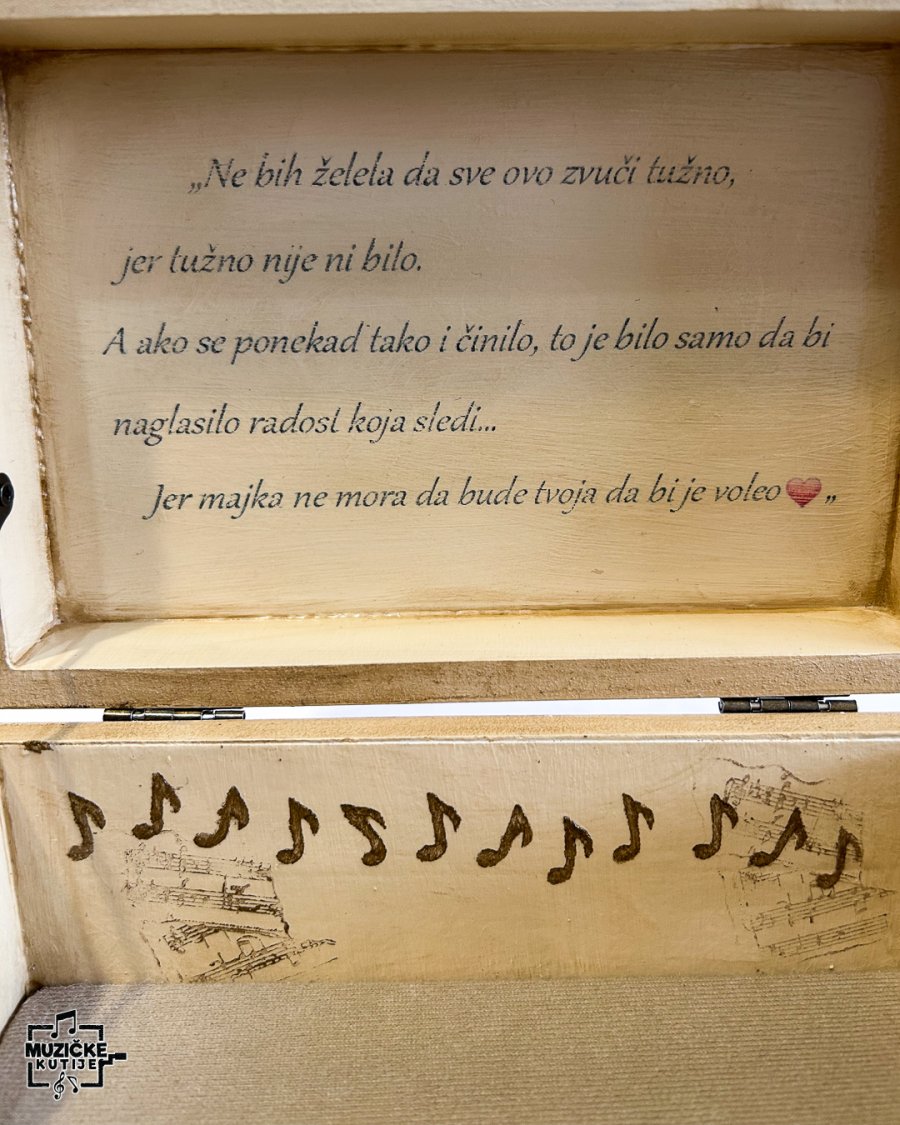 „Ne bih želela da sve ovo zvuči tužno,
jer tužno nije ni bilo.
A ako se ponekad tako i činilo, to je bilo samo da bi
naglasilo radost koja sledi...
Jer majka ne mora da bude tvoja da bi je voleo❤️„
MUZIČKE
KUTIJE